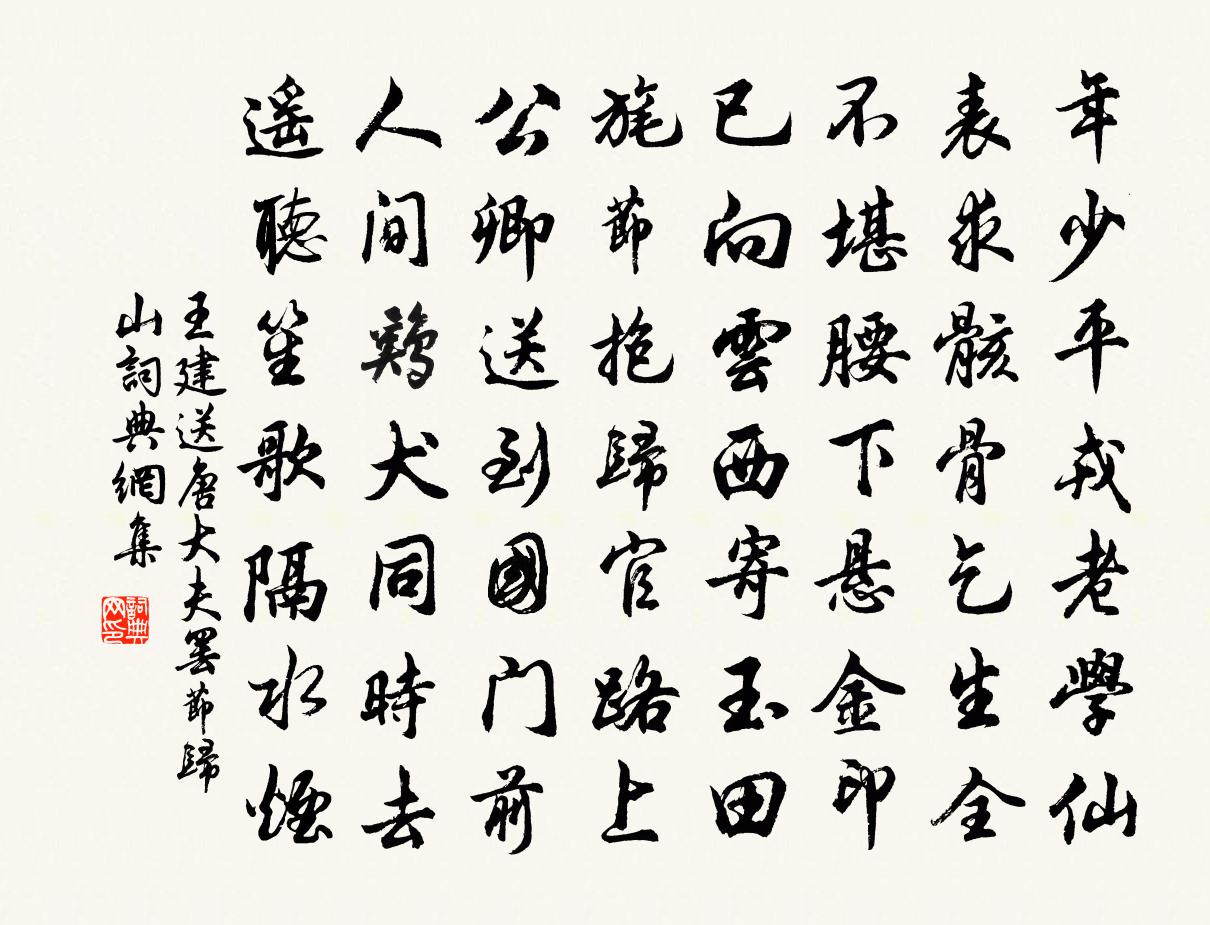 年少平戎老學仙
表求骸骨乞生全
不堪腰下懸金印
已向雲西寄玉田
旄節抱歸官路上
公卿送到國门前
人間鷄犬同時去
遥聽笙歌隔水煙
王建送唐大夫罷節歸
山詞典網集
詞典
网印